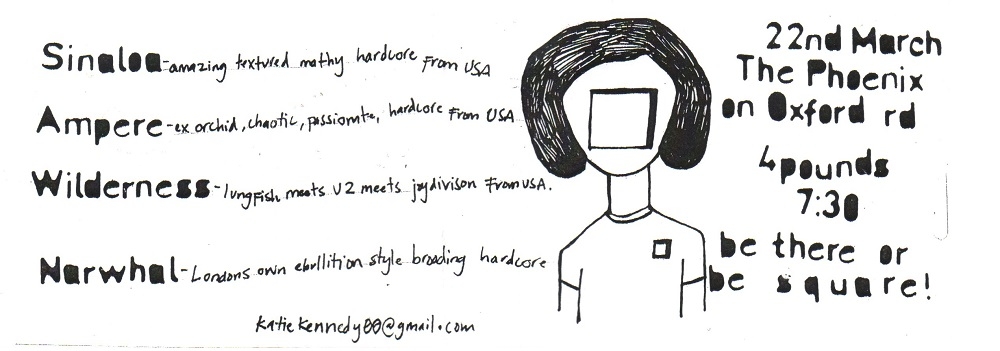 Sinaloa-amazing textured mathy hardcore From USA
Ampere-ex orchid, chaotic, passionate, hardcore From USA
Wilderness-lungfish meets U2 meets joydivison From USA.
Narwhal-Londons own ebullition style brooding hardcore
katiekennedy00@gmail.com
22nd March
The Phoenix
on Oxford rd
4pounds
7:30
be there or
be square!